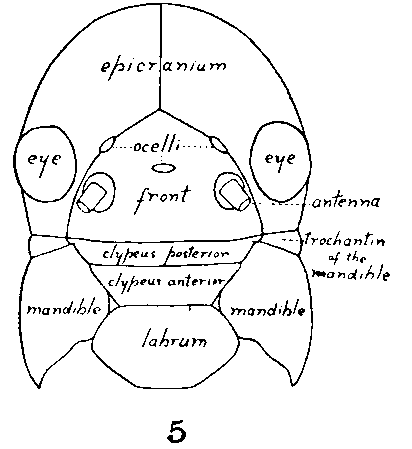 epicranium
ocelli
eye
eye
front
antenna
trochantin
of the
mandible
clypeus posterior
clypeus anterior
mandible
mandible
labrum
5